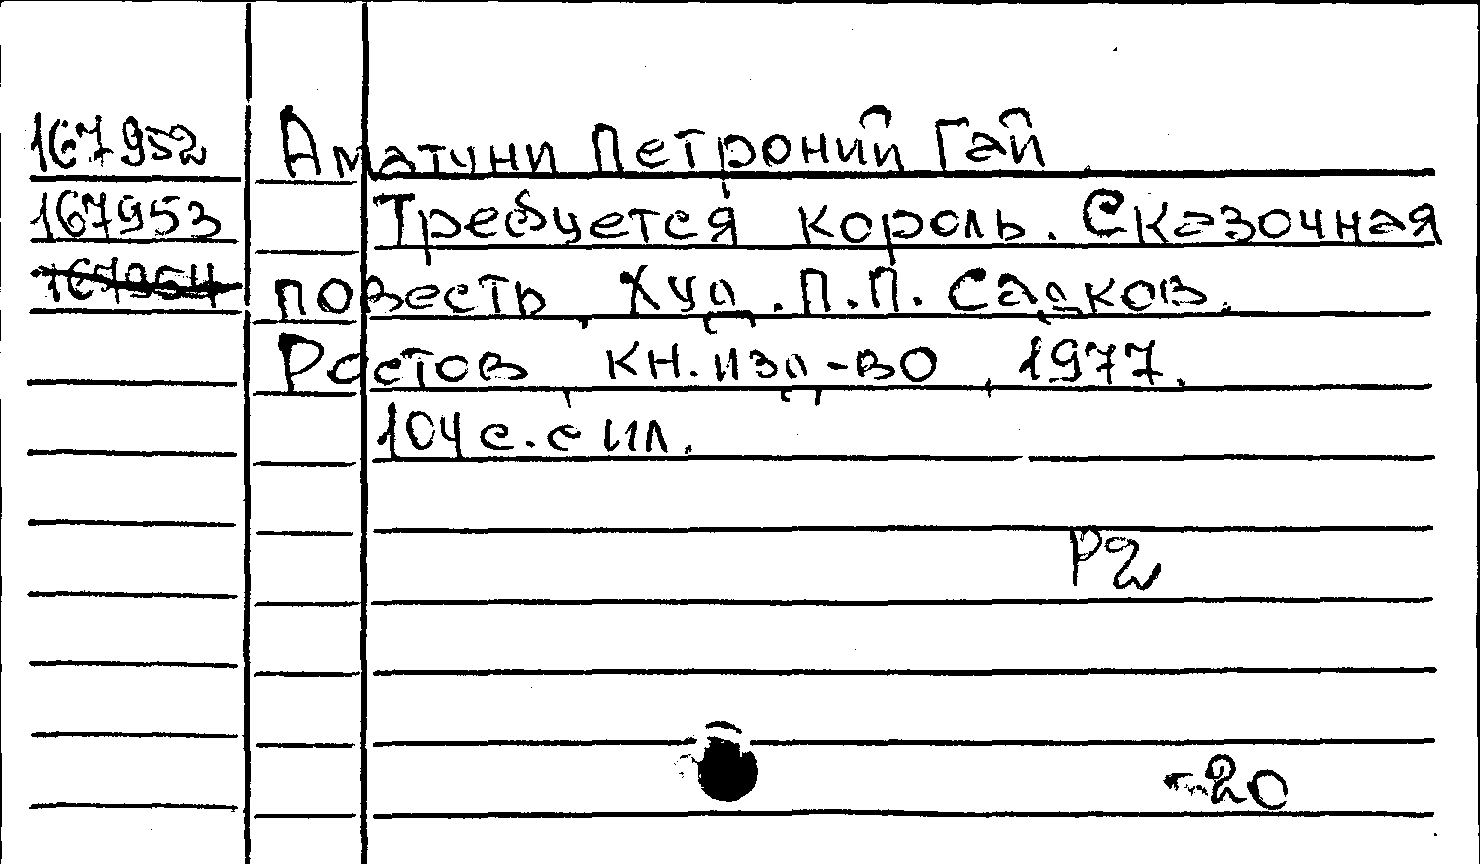 167952 Аматуни Петроний Гай
167953 Требуется король. Сказочная
167954 повесть. Худ. П.П. Садков.
Ростов, кн. изд-во, 1977.
104 с. с ил.
Р2
-20